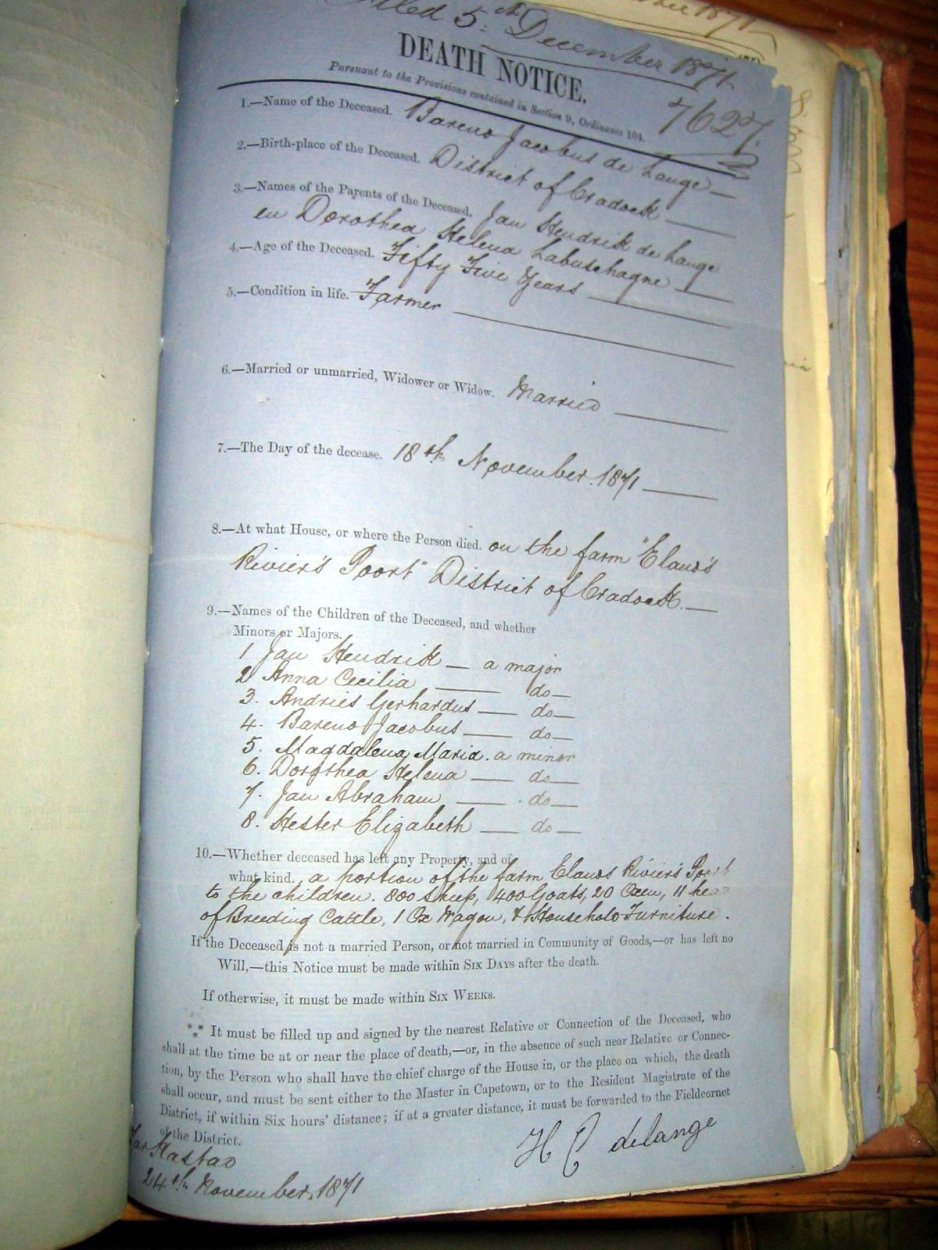 Filed 5th December 1871.
DEATH NOTICE.
Pursuant to the Provisions contained in Section 9, Ordinance 104.
7627.
1.—Name of the Deceased. Bareno Jacobus de Lange —
2.—Birth-place of the Deceased. District of Cradock —
3.—Names of the Parents of the Deceased. Jan Hendrik de Lange
en Dorothea Helena Labuschagne —
4.—Age of the Deceased. Fifty Five Years —
5.—Condition in life. Farmer —
6.—Married or unmarried, Widower or Widow. Married —
7.—The Day of the decease. 18th November 1871 —
8.—At what House, or where the Person died. on the farm "Elands
Rivier's Poort" District of Cradock. —
9.—Names of the Children of the Deceased, and whether
Minors or Majors.
1 Jan Hendrik — a major
2 Anna Cecilia — do —
3. Andries Gerhardus — do —
4. Bareno Jacobus — do —
5. Magdalena Maria. a minor
6. Dorothea Helena — do —
7. Jan Abraham — do —
8. Hester Elizabeth — do —
10.—Whether deceased has left any Property, and of
what kind. a portion of the farm Elands Rivier's Poort
to the children. 800 Sheep, 400 Goats, 20 Oxen, 11 hea
of Breeding Cattle, 1 Ox Wagon, & Household Furniture.
If the Deceased is not a married Person, or not married in Community of Goods,—or has left no
Will,—this Notice must be made within SIX DAYS after the death.
If otherwise, it must be made within SIX WEEKS.
*** It must be filled up and signed by the nearest Relative or Connection of the Deceased, who
shall at the time be at or near the place of death,—or, in the absence of such near Relative or Connec-
tion, by the Person who shall have the chief charge of the House in, or the place on which, the death
shall occur, and must be sent either to the Master in Capetown, or to the Resident Magistrate of the
District, if within Six hours' distance; if at a greater distance, it must be forwarded to the Fieldcornet
of the District.
H C delange
Tarkastad
24th November, 1871